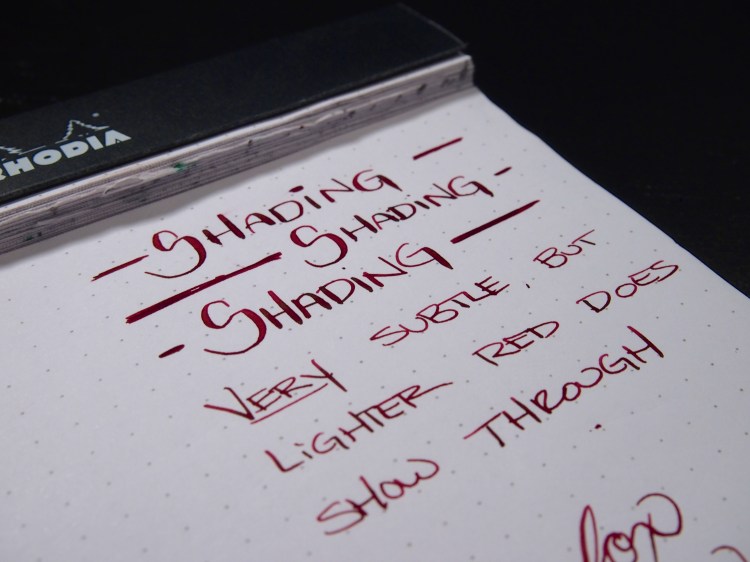 RHODIA
-SHADiNG-
SHADiNG-
-SHADiNG-
VERY SUBTLE, BUT
LiGHTER RED DOES
SHOW THROUGH
fox